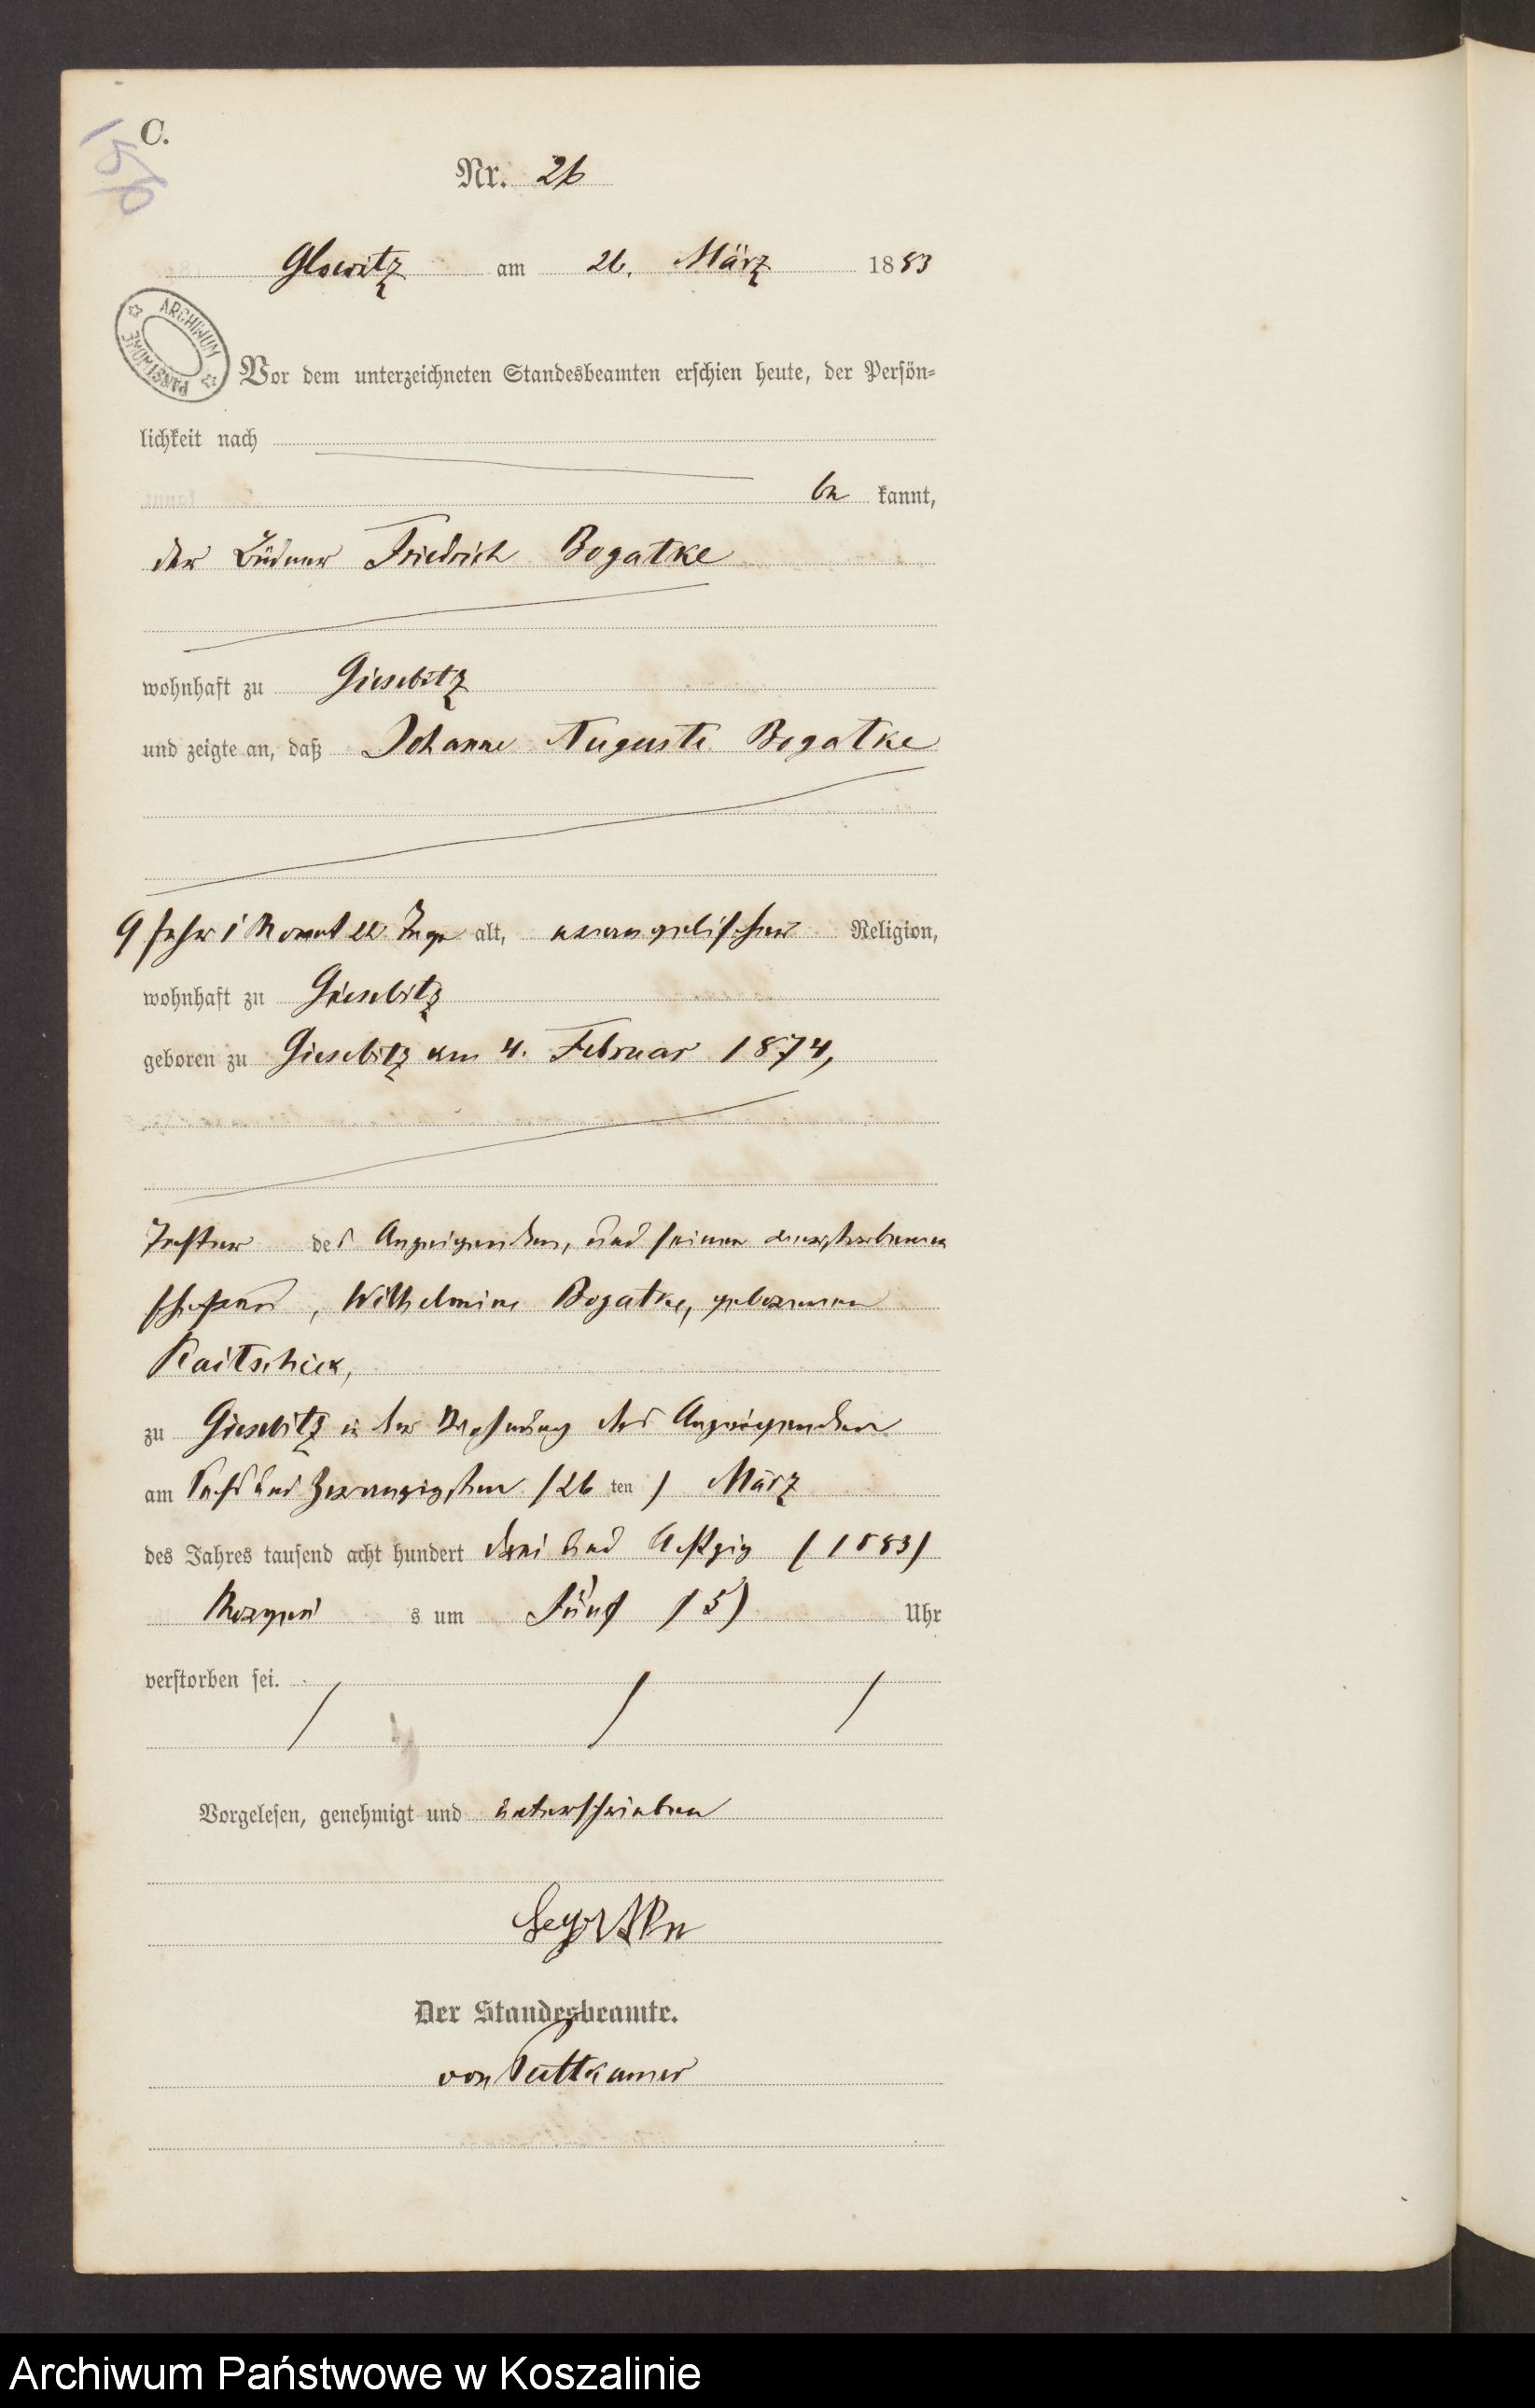 C.
156
Nr. 26
Glowitz am 26. März 1883
ARCHIWUM PAŃSTWOWE
Vor dem unterzeichneten Standesbeamten erschien heute, der Persön-
lichkeit nach
be kannt,
der Büdner Friedrich Bogatke
wohnhaft zu Giesebitz
und zeigte an, daß Johanne Auguste Bogatke
9 Jahr 1 Monat 22 Tage alt, evangelischer Religion,
wohnhaft zu Giesebitz
geboren zu Giesebitz am 4. Februar 1874,
Tochter des Anzeigenden, und seiner verstorbenen
Ehefrau, Wilhelmine Bogatke, geborenen
Raitschick,
zu Giesebitz in der Wohnung des Anzeigenden
am sechs und zwanzigsten (26 ten) März
des Jahres tausend acht hundert drei und achtzig (1883)
Morgens s um Fünf (5) Uhr
verstorben sei.
Vorgelesen, genehmigt und unterschrieben
Der Standesbeamte.
von Puttkamer
Archiwum Państwowe w Koszalinie